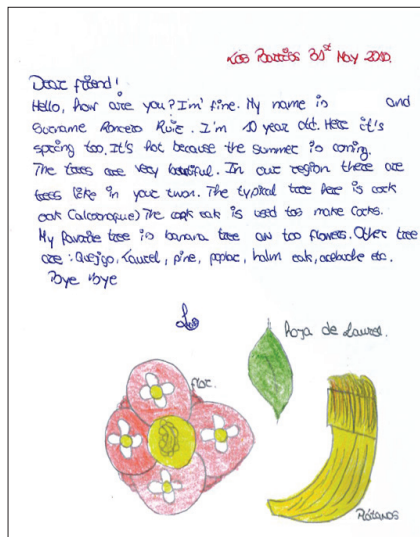 Los Barrios 31st May 2010.
Dear friend!
Hello, how are you? I'm' fine. My name is and
Surname Roncero Ruiz. I'm 10 year old. Here it's
spring too. It's hot because the summer is coming.
The trees are very beautiful. In our region there are
trees like in your twon. The typical tree here is cork
oak (alcornoque) The cork oak is used too make corks.
My favorite tree is banana tree an too flowers. Other tree
are: Quejigo, Laurel, pine, poplar, holm oak, acebuche etc.
Bye Bye
Hoja de Laurel.
flor.
Plátanos